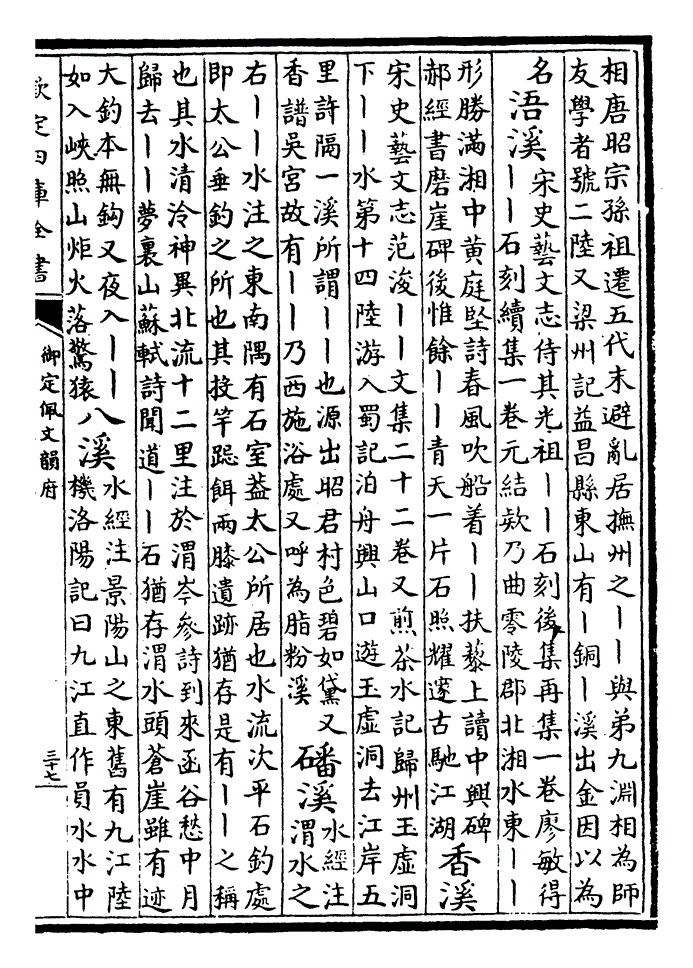 相唐昭宗孫祖遷五代末避亂居撫州之丨丨與弟九淵相為師
友學者號二陸又梁州記益昌縣東山有丨銅丨溪出金因以為
名
浯溪
宋史藝文志侍其光祖丨丨石刻後集再集一卷廖敏得
丨丨石刻續集一卷元結欵乃曲零陵郡北湘水東丨丨
形勝滿湘中黄庭堅詩春風吹船着丨丨扶藜上讀中興碑
郝經書磨崖碑後惟餘丨丨青天一片石照耀邃古馳江湖
香溪
宋史藝文志范浚丨丨文集二十二卷又煎茶水記歸州玉虛洞
下丨丨水第十四陸游入蜀記泊舟興山口遊玉虛洞去江岸五
里許隔一溪所謂丨丨也源出昭君村色碧如黛又
香譜吳宮故有丨丨乃西施浴處又呼為脂粉溪
磻溪
水經注
渭水之
右丨丨水注之東南隅有石室葢太公所居也水流次平石釣處
即太公垂釣之所也其投竿跽餌兩膝遺跡猶存是有丨丨之稱
也其水清泠神異北流十二里注於渭岑參詩到來函谷愁中月
歸去丨丨夢裏山蘇軾詩聞道丨丨石猶存渭水頭蒼崖雖有迹
大釣本無鈎又夜入丨丨
如入峽照山炬火落驚猿
八溪
水經注景陽山之東舊有九江陸
機洛陽記曰九江直作員水水中
欽定四庫全書
御定佩文韻府
三十七